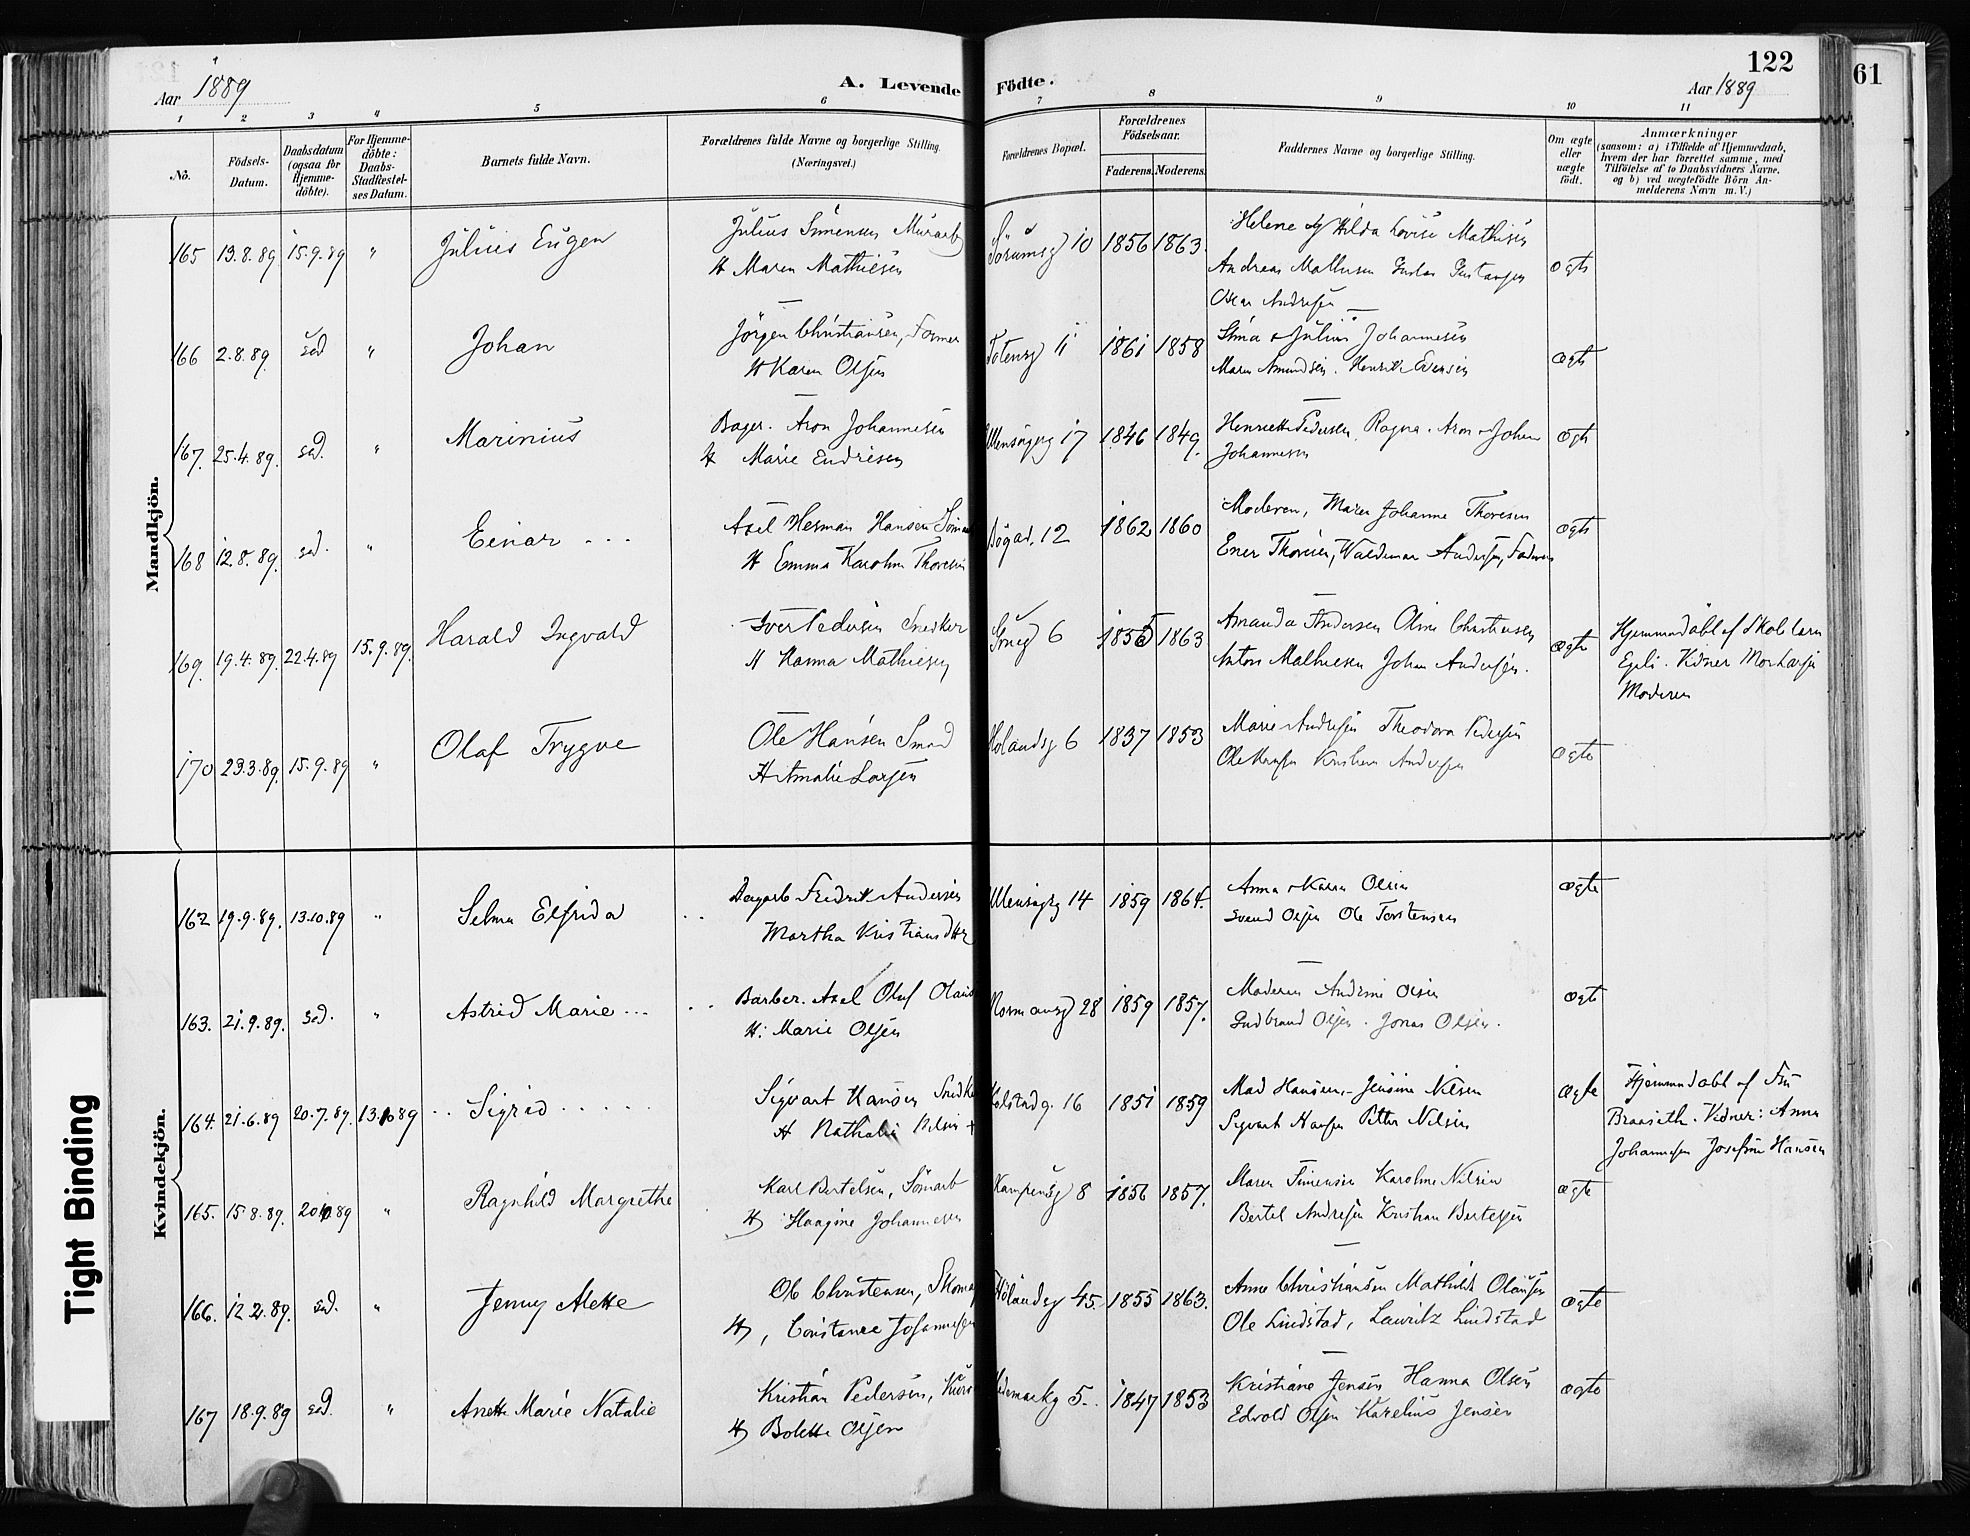 122
61
Aar 1889
A. Levende Födte.
Aar 1889
1 2 3 4 5 6 7 8 9 10 11
No.
Födsels-Datum.
Daabsdatum (ogsaa for Hjemme-döbte).
For Hjemme-döbte: Daabs-Stadfestel-ses Datum.
Barnets fulde Navn.
Forældrenes fulde Navne og borgerlige Stilling. (Næringsvei.)
Forældrenes Bopæl.
Forældrenes Födselsaar.
Faderens. Moderens.
Faddernes Navne og borgerlige Stilling.
Om ægte eller uægte födt.
Anmærkninger
(saasom: a) i Tilfælde af Hjemmedaab,
hvem der har forrettet samme, med
Tilföielse af to Daabsvidners Navne,
og b) ved uægtefödte Börn An-
melderens Navn m. V.)
Mandkjön.
165 13.8.89 15.9.89 " Julius Eugen
Julius Simensen Murarb
H Maren Mathiesen
Sörumsg 10 1856 1863
Helene og Hilda Lovise Mathisen
Andreas Mathisen Gustav Gustavsen
Oscar Andresen
ægte
166 2.8.89. sad " Johan
Jörgen Christiansen, Former
H Karen Olsen
Totensg 11 1861 1858
Stina & Julius Johannesen
Maren Amundsen. Henrik Evensen
ægte
167. 25.4.89. sad. " Marinius
Bager. Aron Johannesen
H Marie Endresen
Ullensagerg 17 1846 1849.
Henriette Pedersen, Ragna. Aron & Johan
Johannesen
ægte
168 12.8.89. sad. " Einar ...
Axel Herman Hansen
H Emma Karoline Thoresen
Bögad. 12 1862 1860
Moderen, Maren Johanne Thoresen
Ener Thoresen, Waldemar Andersen, Faderen
ægte
169. 19.4.89. 22.4.89 15.9.89. Harald Ingvald
Iver Pedersen Snedker
H Hanna Mathiesen
6 1855 1863
Amanda Andersen Oline Christensen
Anton Mathiesen Johan Andersen.
ægte
Hjemmedöbt af Skolelærer
Moderen
170 23.3.89. 15.9.89 " Olaf Trygve
Ole Hansen Smed
H Amalie Larsen
Hölandsg 6 1837 1853
Marie Andresen Theodora Pedersen
Ole Hansen Kristian Andersen
ægte
Kvindekjön.
162 19.9.89. 13.10.89 " Selma Elfrida
Dagarb Fredrik Andersen
Martha Kristiansdtr
Ullensagerg 14 1859 1864.
Anna & Karen Olsen
Svend Olsen Ole Torstensen
ægte
163. 21.9.89. sad. " Astrid Marie ...
Barber. Axel Olaf
H: Marie Olsen
Normansg 28 1859 1857.
Moderen Andrine Olsen
Gudbrand Olsen. Jonas Olsen.
ægte
164. 21.6.89 20.7.89. 13.10.89 Sigrid
Sigvart Hansen Snedker
H Nathalie Nilsen
Kolstadg. 16 1851 1859
Mad Hansen, Jensine Nilsen
Sigvart Hansen Petter Nilsen
ægte
Hjemmedöbt af Fru
Braaseth. Vidner: Anna
Johannesen Josefine Hansen
165. 15.8.89. 20.10.89 " Ragnhild Margrethe
Karl Bertelsen, Sömarb
H Haagine Johannesen
Kampensg 8 1856 1857.
Maren Simensen Karoline Nilsen
Bertel Andresen Kristian Bertelsen
ægte
166. 12.2.89. sad. " Jenny Alette
Ole Christensen, Skomag
H, Constance Johannesen
Hölandsg 45. 1855 1863.
Anne Christiansen Mathilde Olausen
Ole Lindstad, Lauritz Lindstad
ægte
167 18.9.89 sad. " Anette Marie Natalie
Kristian Pedersen,
H Bolette Olsen
Hedemarkg 5. 1847 1853
Kristiane Jensen Hanna Olsen
Edvold Olsen Karelius Jensen
ægte
Tight Binding